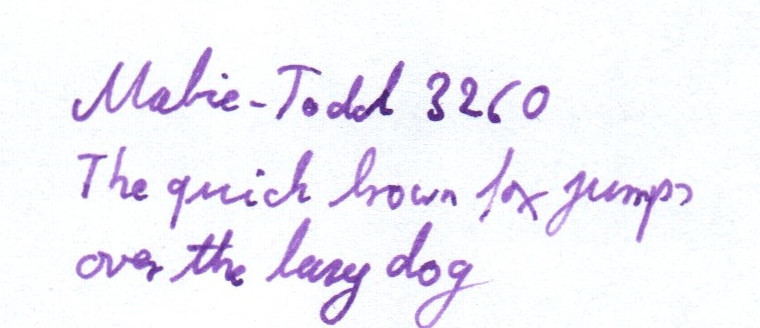 Mabie-Todd 3260
The quick brown fox jumps
over the lazy dog